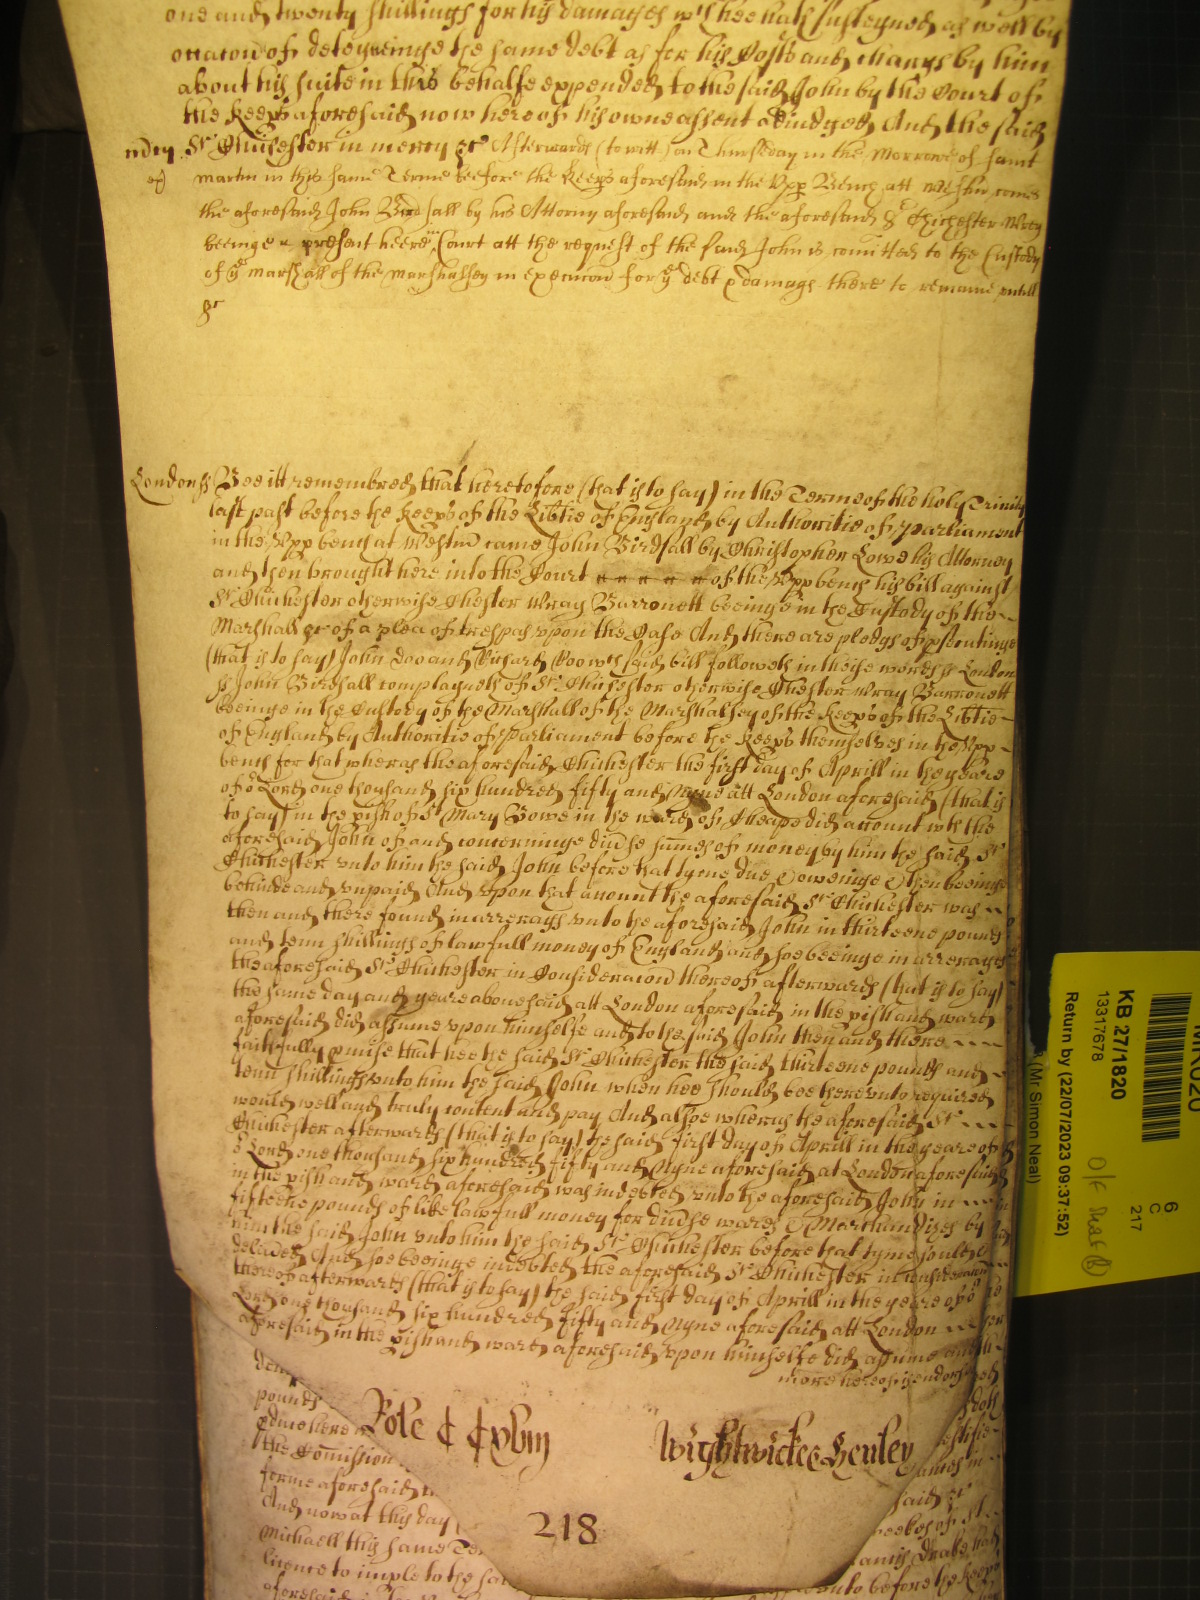 one and twenty shillings for his damages wch hee hath susteyned as well by
occacon of deteyneinge the same debt as for his Costs and charges by him
about his suite in this behalfe expended to the said John by the Court of
the Keeps aforesaid now here of his owne assent adiudged And the said
Sr Chichester in mercy &c Afterwards (to witt) on Thursday in the Morrowe of saint
Martin in this same Terme before the Keeps aforesaid in the Upp Bench att Westm comes
the aforesaid John Birdsall by his Attorny aforesaid and the aforesaid Sr Chichester Wrey
beeinge present heere in Court att the request of the said John is comitted to the Custody
of ye Marshall of the Marshalsey in execucon for ye debt & damags there to remaine untill
&c
London ss Bee itt remembred that heretofore (that is to say) in the Terme of the holy Trinity
last past before the Keeps of the Libtie of England by Authoritie of Parliament
in the Upp bench at Westm came John Birdsall by Christopher Lowe his Attorney
and then brought here into the Court of the Upp bench his bill against
Sr Chichester otherwise Chester Wray Barronett beeinge in the Custody of the
Marshall &c of a plea of trespas upon the Case And there are pledgs of psecutinge
(that is to say) John Doo and Richard Roo wch said bill followeth in theise words ss London
ss John Birdsall complayneth of Sr Chichester otherwise Chester Wray Barronett
beeinge in the Custody of the Marshall of the Marshalsey of the Keeps of the Libtie
of England by Authoritie of Parliament before the Keeps themselves in the Upp
bench for that wheras the aforesaid Chichester the first day of Aprill in the yeare
of or Lord one thousand six hundred fifty and Nyne att London aforesaid (that is
to say) in the pish of St Mary Bowe in the ward of Cheape did account wth the
aforesaid John of and concerninge divse sumes of money by him the said Sr
Chichester unto him the said John before that tyme due & oweinge & then beeinge
behinde and unpaid And upon that account the aforesaid Sr Chichester was
then and there found in arrerags unto the aforesaid John in thirteene pounds
and tenn shillings of lawfull money of England and soe beeinge in arrerages
the aforesaid Sr Chichester in Consideracon thereof afterwards (that is to say)
the same day and yeare abovesaid att London aforesaid in the pish and ward
aforesaid did assume upon himselfe and to the said John then and there
faithfully pmise that hee the said Sr Chichester the said thirteene pounds and
tenn shillings unto him the said John when hee should bee thereunto required
would well and truly content and pay And alsoe wheras the aforesaid Sr
Chichester afterwards (that is to say) the said first day of Aprill in the yeare of
or Lord one thousand six hundred fifty and Nyne aforesaid at London aforesaid
in the pish and ward aforesaid was indebted unto the aforesaid John in
fifteene pounds of like lawfull money for divse wares & Marchandizes by
him the said John unto him the said Sr Chichester before that tyme sould &
delived And soe beeinge indebted the aforesaid Sr Chichester in consideracon
thereof afterwards (that is to say) the said first day of Aprill in the yeare of or
Lord one thousand six hundred fifty and Nyne aforesaid att London
aforesaid in the pish and ward aforesaid upon himselfe did assume and
more hereof is endorsed
pounds
the Comission
forme aforesaid
said &c
And now at this day
Michaell this same Te
licence to imple to the sa
unto before the Keeps
aforesaid
Wightwicke Henley
218
KB 27/1820
13317678
Return by (22/07/2023 09:37:52)
(Mr Simon Neal)
6
C
217